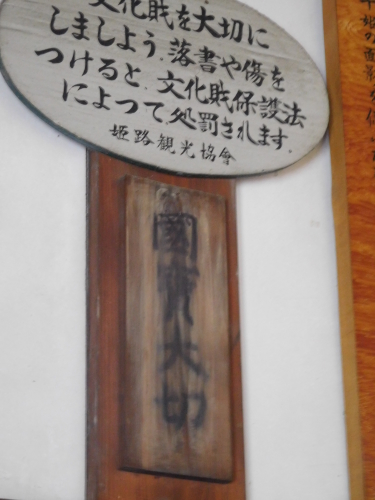 文化財を大切に
しましよう．落書や傷を
つけると．文化財保護法
によって処罰されます．
姫路観光協會
國寶大切